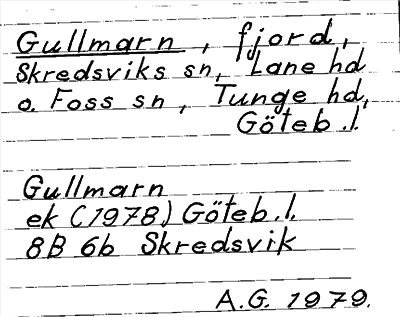 Gullmarn, fjord,
Skredsviks sn, Lane hd
o. Foss sn, Tunge hd,
Göteb.l.
Gullmarn
ek (1978) Göteb.l.
8B 6b Skredsvik
A.G. 1979.